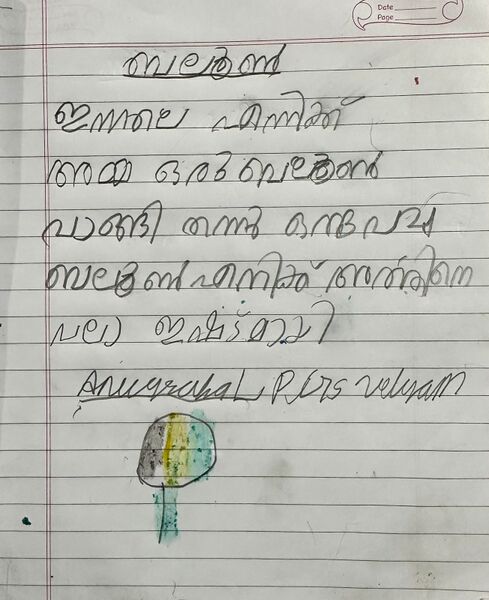 Date
Page
ബലൂൺ
ഇന്നലെ എനിക്ക്
അമ്മ ഒരു ബലൂൺ
വാങ്ങി തന്നു
ബലൂൺ എനിക്ക് അതിനെ
ഇഷ്ടമായി
Anugraha L